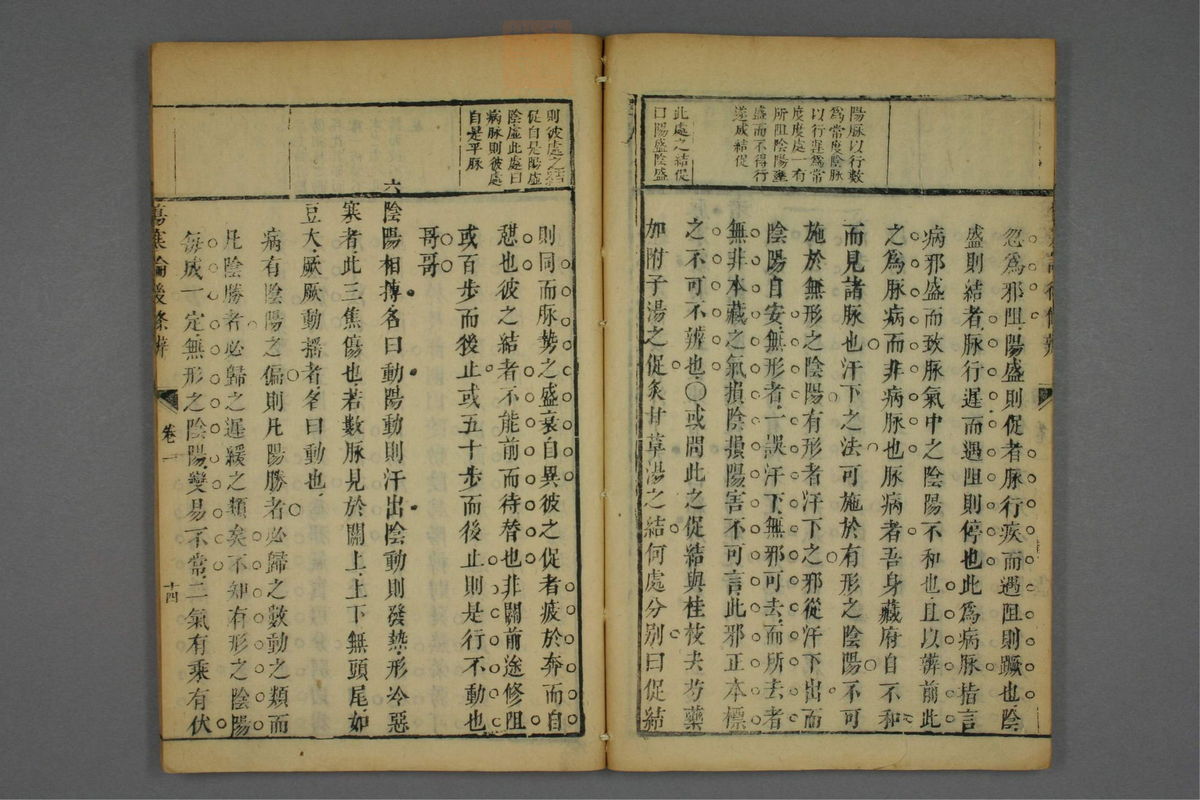 陽脉以行數
為常度陰脉
以行遲為常
度度處一有
所阻陰陽雖
盛而不得行
遂成結促
此處之結促
曰陽盛陰盛
忽為邪阻陽盛則促者脉行疾而遇阻則蹶也陰
盛則結者脉行遲而遇阻則停也此為病脉指言
病邪盛而致脉氣中之陰陽不和也且以辨前此
之為脉病而非病脉也脉病者吾身藏府自不和
而見諸脉也汗下之法可施於有形之陰陽不可
施於無形之陰陽有形者汗下之邪從汗下出而
陰陽自安無形者一誤汗下無邪可去而所去者
無非本藏之氣損陰損陽害不可言此邪正本標
之不可不辨也○或問此之促結與桂枝去芍藥
加附子湯之促炙甘草湯之結何處分別曰促結
則彼處之結
促自是陽虛
陰虛此處曰
病脉則彼處
自是平脉
則同而脉勢之盛衰自異彼之促者疲於奔而自
憩也彼之結者不能前而待替也非關前途修阻
或百步而後止或五十步而後止則是行不動也
哥哥
六陰陽相搏名曰動陽動則汗出陰動則發熱形冷惡
寒者此三焦傷也若數脉見於關上上下無頭尾如
豆大厥厥動搖者名曰動也
病有陰陽之偏則凡陽勝者必歸之數動之類而
凡陰勝者必歸之遲緩之類矣不知有形之陰陽
每成一定無形之陰陽變易不常二氣有乘有伏
傷寒論後條辨
卷一
十四